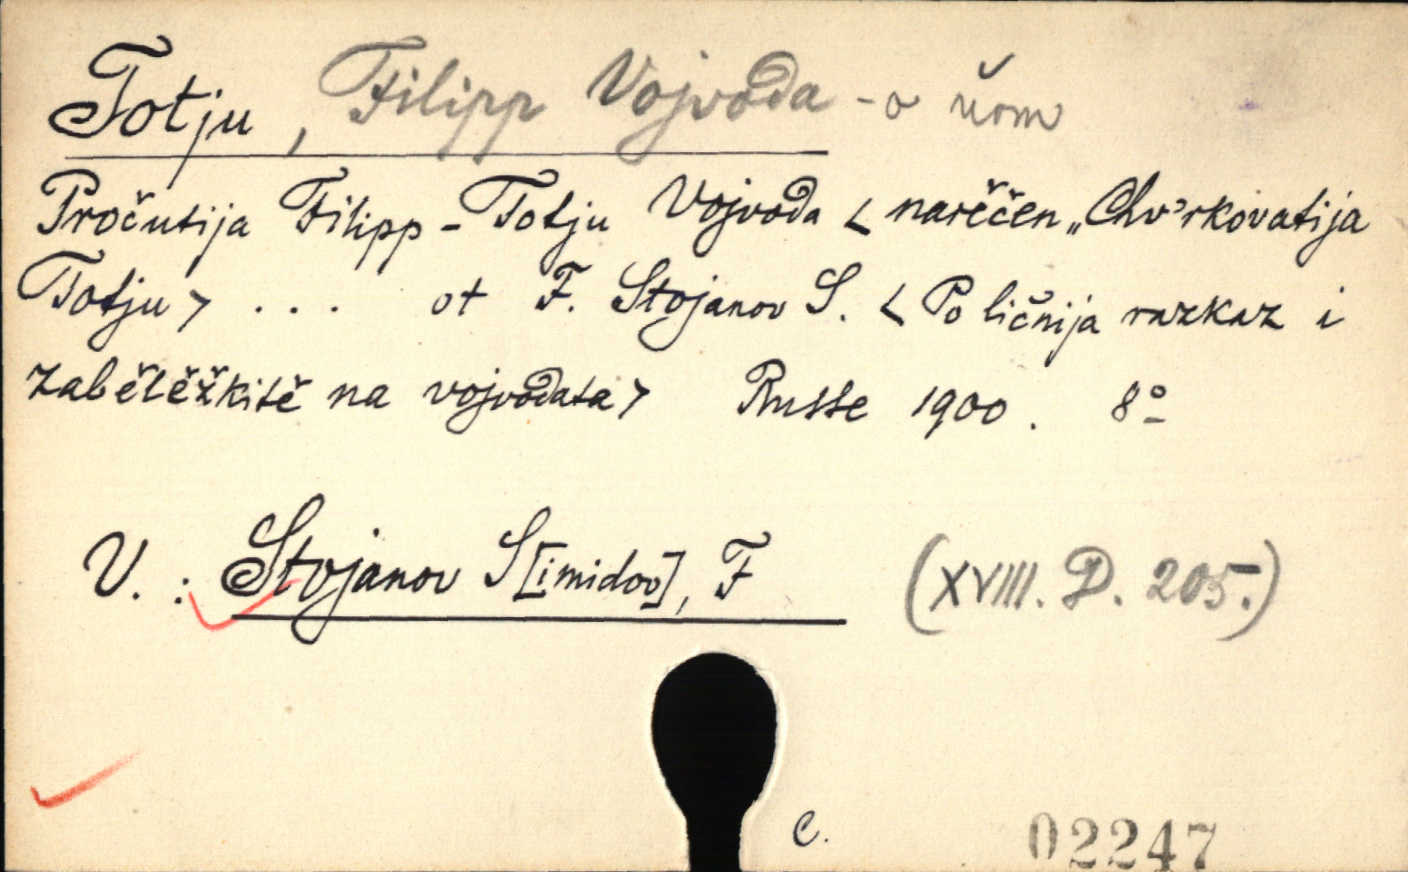 Totju, Filipp Vojvoda - o
Pročutija Filipp - Totju Vojvoda < narěčen „Chv'rkovatija
Totju > . . . ot F. Stojanov S. < Po ličnija razkaz i
zabělěžkitě na vojvodata > Russe 1900. 8º
V. : Stojanov S[imidov], F (XVIII. D. 205.)
c.
02247